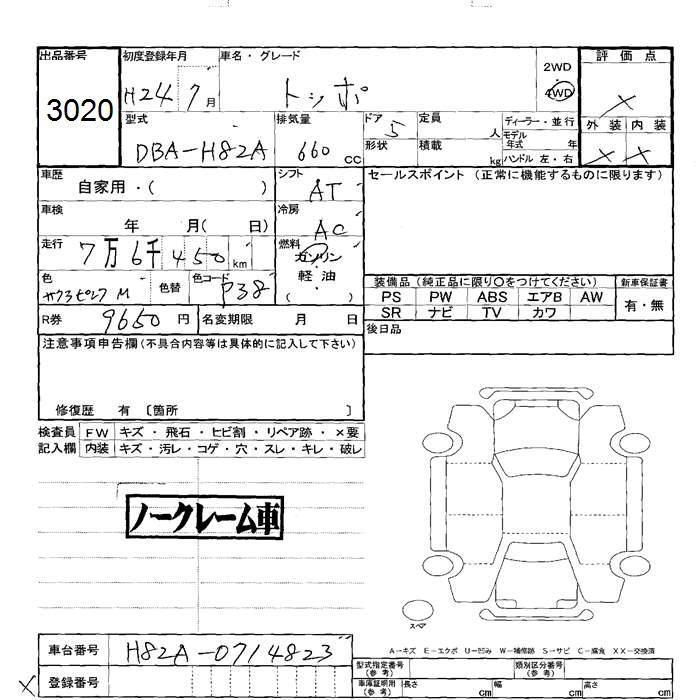 出品番号 初度登録年月 車名・グレード 2WD 評価点
3020 H24 7月 トッポ 4WD X
型式 排気量 ドア 定員 ディーラー・並行 外装 内装
DBA-H82A 660 CC 5 人 モデル年式 年 X X
形状 積載 kg ハンドル 左・右
車歴 シフト セールスポイント (正常に機能するものに限ります)
自家用・( ) AT
車検 冷房
年 月( 日) AC
走行 燃料
7万6千450km ガソリン
軽・油
( )
色 色替 色コード 装備品 (純正品に限り○をつけてください) 新車保証書
サクラピンク M P38 PS PW ABS エアB AW 有・無
SR ナビ TV カワ
R券 9650円 名変期限 月 日 後日品
注意事項申告欄(不具合内容等は具体的に記入して下さい)
修復歴 有 〔箇所 〕
検査員 FW キズ・飛石・ヒビ割・リペア跡・×要
記入欄 内装 キズ・汚レ・コゲ・穴・スレ・キレ・破レ
ノークレーム車
スペア
A-キズ E-エクボ U-凹み W-補修跡 S-サビ C-腐食 XX-交換済
車台番号 H82A-0714823
型式指定番号(参考) 類別区分番号(参考)
X 登録番号 車庫証明用(参考) 長さ cm 幅 cm 高さ cm